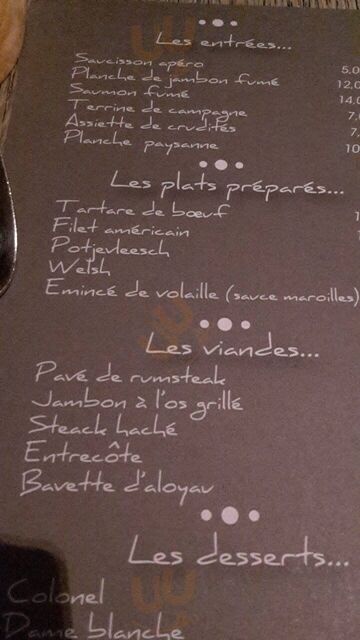 Les entrées...
Saucisson apéro 5,0
Planche de jambon fumé 12,0
Saumon fumé 14,0
Terrine de campagne 7,0
Assiette de crudités 7,
Planche paysanne 10
Les plats préparés...
Tartare de bœuf 1
Filet américain 1
Potjevleesch
Welsh
Emincé de volaille (sauce maroilles)
Les viandes...
Pavé de rumsteak
Jambon à l'os grillé
Steack haché
Entrecôte
Bavette d'aloyau
Les desserts...
Colonel
Dame blanche